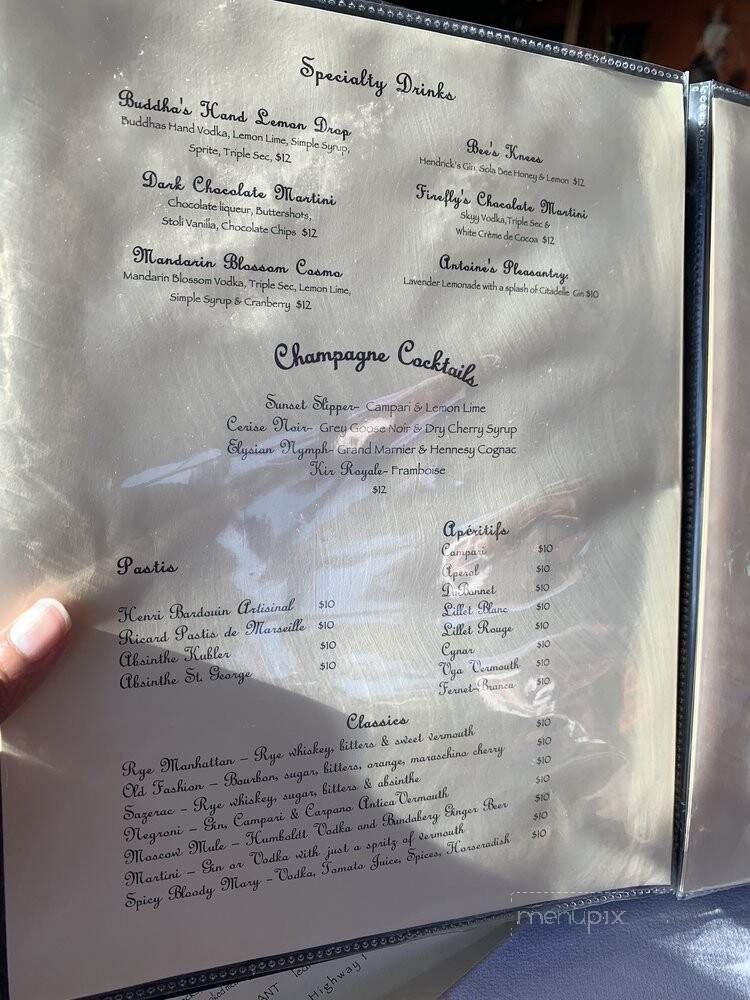 Specialty Drinks
Buddha's Hand Lemon Drop
Buddhas Hand Vodka, Lemon Lime, Simple Syrup,
Sprite, Triple Sec, $12
Dark Chocolate Martini
Chocolate liqueur, Buttershots,
Stoli Vanilla, Chocolate Chips $12
Mandarin Blossom Cosmo
Mandarin Blossom Vodka, Triple Sec, Lemon Lime,
Simple Syrup & Cranberry $12
Bee's Knees
Hendrick's Gin, Sola Bee Honey & Lemon $12
Firefly's Chocolate Martini
Skyy Vodka, Triple Sec &
White Crème de Cocoa $12
Antoine's Pleasantry:
Lavender Lemonade with a splash of Citadelle Gin $10
Champagne Cocktails
Sunset Slipper- Campari & Lemon Lime
Cerise Noir- Grey Goose Noir & Dry Cherry Syrup
Elysian Nymph- Grand Marnier & Hennesy Cognac
Kir Royale- Framboise
$12
Pastis
Henri Bardouin Artisinal $10
Ricard Pastis de Marseille $10
Absinthe Kubler $10
Absinthe St. George $10
Apéritifs
Campari $10
Aperol $10
DuBonnet $10
Lillet Blanc $10
Lillet Rouge $10
Cynar $10
Vya Vermouth $10
Fernet-Branca $10
Classics
Rye Manhattan – Rye whiskey, bitters & sweet vermouth $10
Old Fashion – Bourbon, sugar, bitters, orange, maraschino cherry $10
Sazerac – Rye whiskey, sugar, bitters & absinthe $10
Negroni – Gin, Campari & Carpano Antica Vermouth $10
Moscow Mule – Humboldt Vodka and Bundaberg Ginger Beer $10
Martini – Gin or Vodka with just a spritz of vermouth $10
Spicy Bloody Mary – Vodka, Tomato Juice, Spices, Horseradish $10
menupix
Highway 1